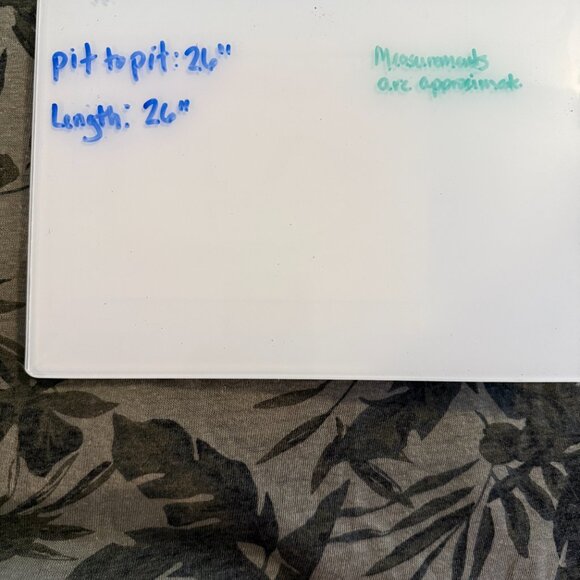 pit to pit: 26"
Length: 26"
Measurements
are approximate.